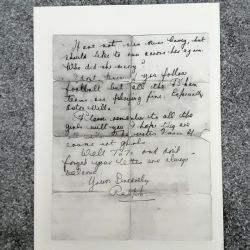 Have not seen
should like to run across her again.
Who did she marry?
I don't know if you follow
football but all the B'ham
teams are playing fine. Especially
Aston Villa.
Please remember to all the
girls will you, I hope they are
course not girls.
Well T.T.F.N and don't
forget your letters are always
welcome
Yours Sincerely